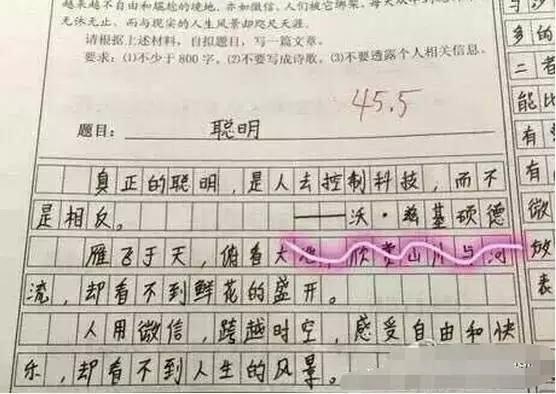 越来越不自由和尴尬的境地。亦如微信，人们被它绑架，每天
无休无止，而与现实的人生风景却咫尺天涯。
请根据上述材料，自拟题目，写一篇文章。
要求：(1)不少于800字，(2)不要写成诗歌，(3)不要透露个人相关信息。
45.5
题目： 聪明
真正的聪明，是人去控制科技，而不
是相反。 ——沃·兹基硕德
雁飞于天，俯看大地，欣赏山川与河
流，却看不到鲜花的盛开。
人用微信，跨越时空，感受自由和快
乐，却看不到人生的风景。
与
多的
二者
能比
有
有
微
妙
表